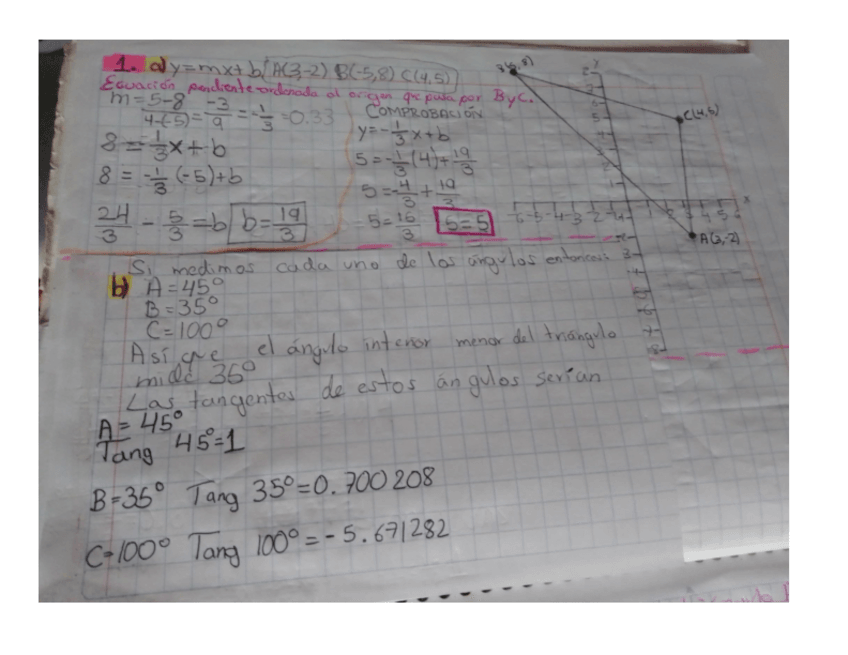 1. a) y=mx+b A(3,-2) B(-5,8) C(4,5)
Ecuación pendiente-ordenada al origen que pasa por B y C.
m = 5-8/4-(-5) = -3/9 = -1/3 = 0.33
8 = -1/3 x + b
8 = -1/3 (-5) + b
24/3 - 5/3 = b b = 19/3
COMPROBACIÓN
y = -1/3 x + b
5 = -1/3 (4) + 19/3
5 = -4/3 + 19/3
5 = 15/3 5=5
C(4,5)
A(3,-2)
Si medimos cada uno de los ángulos entonces:
b) A = 45°
B = 35°
C = 100°
Así que el ángulo interior menor del triángulo
mide 35°
Las tangentes de estos ángulos serían
A = 45°
Tang 45° = 1
B = 35° Tang 35° = 0.700208
C = 100° Tang 100° = -5.671282